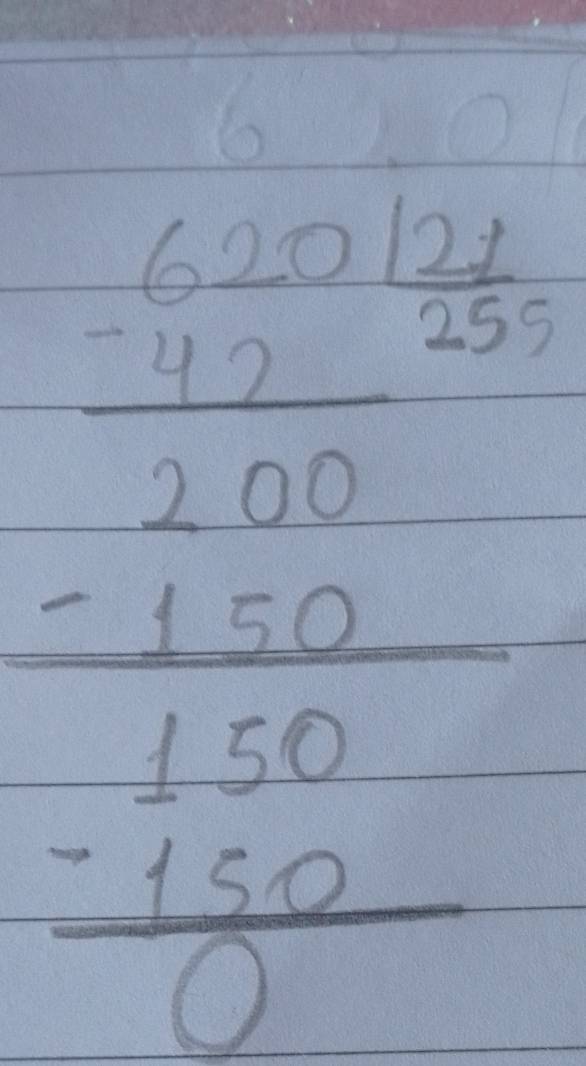 6 0
620 |21
255
- 42
200
- 150
150
- 150
0